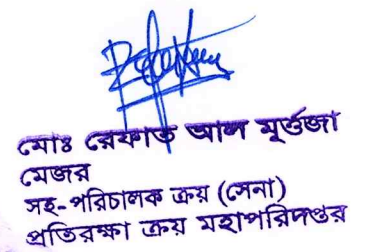 মোঃ রেফাত আল মূর্ত্তজা
মেজর
সহ-পরিচালক ক্রয় (সেনা)
প্রতিরক্ষা ক্রয় মহাপরিদপ্তর